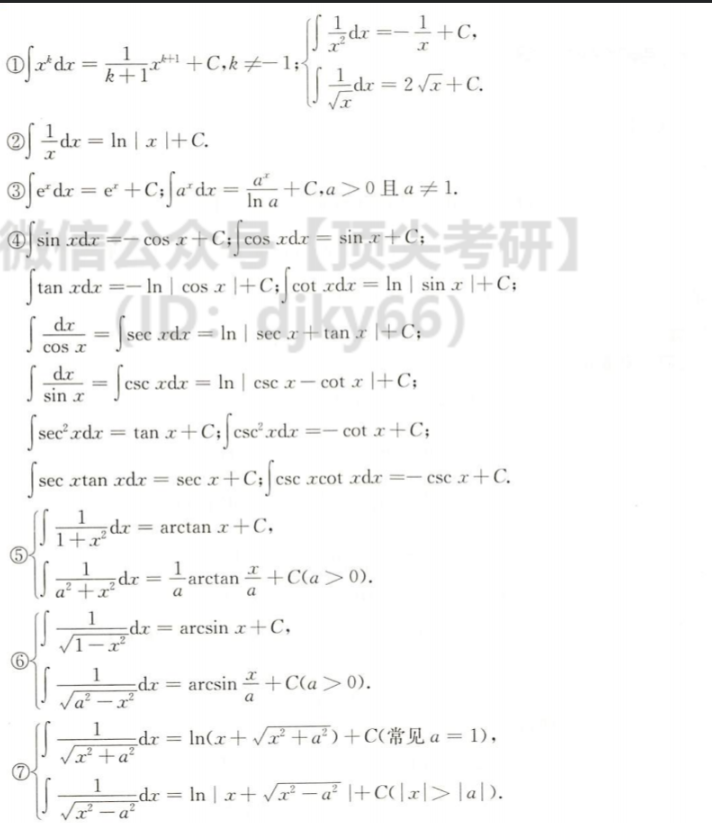 ①∫xᵏdx = 1/(k+1) xᵏ⁺¹ + C, k ≠ −1; { ∫ 1/x² dx = − 1/x + C,
∫ 1/√x dx = 2√x + C.
②∫ 1/x dx = ln | x | + C.
③∫eˣdx = eˣ + C; ∫aˣdx = aˣ/ln a + C, a > 0 且 a ≠ 1.
微信公众号【顶尖考研】
④∫sin xdx = − cos x + C; ∫cos xdx = sin x + C;
∫tan xdx = − ln | cos x | + C; ∫cot xdx = ln | sin x | + C;
(ID: djky66)
∫ dx/cos x = ∫sec xdx = ln | sec x + tan x | + C;
∫ dx/sin x = ∫csc xdx = ln | csc x − cot x | + C;
∫sec²xdx = tan x + C; ∫csc²xdx = − cot x + C;
∫sec xtan xdx = sec x + C; ∫csc xcot xdx = − csc x + C.
⑤{ ∫ 1/(1+x²) dx = arctan x + C,
∫ 1/(a²+x²) dx = 1/a arctan x/a + C(a > 0).
⑥{ ∫ 1/√(1−x²) dx = arcsin x + C,
∫ 1/√(a²−x²) dx = arcsin x/a + C(a > 0).
⑦{ ∫ 1/√(x²+a²) dx = ln(x + √(x²+a²)) + C(常见 a = 1),
∫ 1/√(x²−a²) dx = ln | x + √(x²−a²) | + C(|x| > |a|).